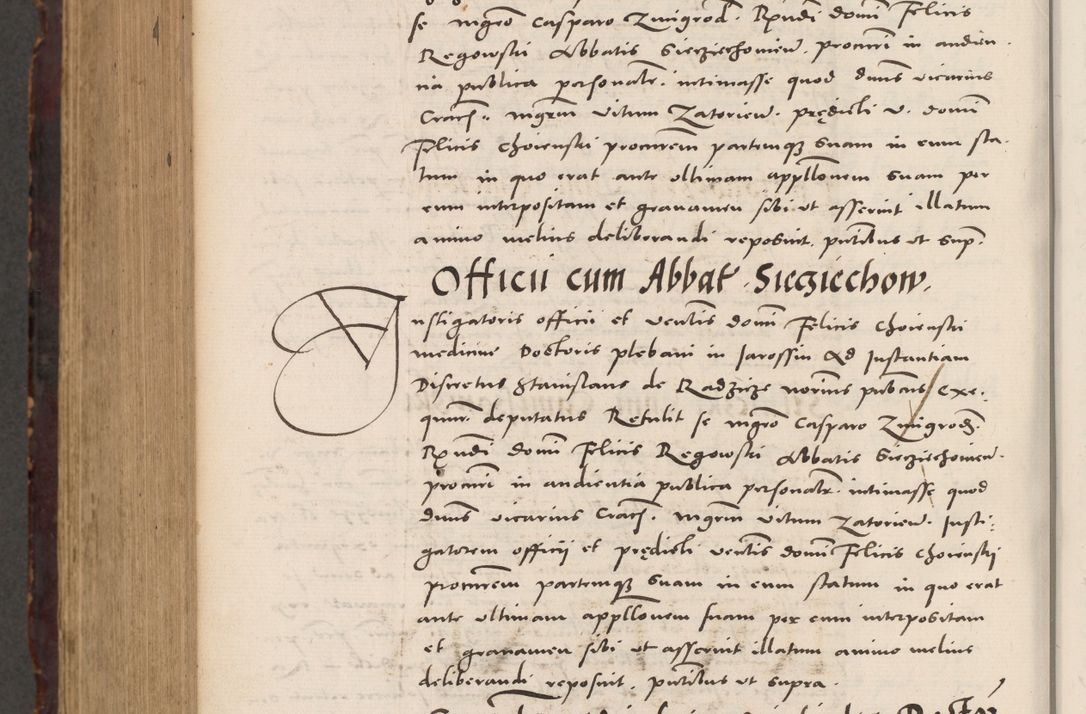 se mgrō Casparo Zmigrod. Rxndi domī Felicis
Regowski Abbatis Siecziechowien. procurī in audien
cia publica personalr. intimasse quod dnūs vicarius
Cracō. mgrūm Vitum Zatorien. prędicti v. domī
Felicis Choienski procurēm partemqꝫ suam in eum sta
tum in quo erat ante ultimam appllōnem suam per
eum interpositam et gravamen sibi ut asseruit illatum
animo melius deliberandi reposuit. pntībus ut sup.
Officii cum Abbat Sieciechow.
Instigatoris officii et ventīs domī Felicis Choienski
medicine Doctoris plebani in Jarossin Ad Instantiam
Discretus Stanislaus de Radzicze norīus pubcus exe
quūr. deputatus Retulit se mgrō Casparo Zmigrodz.
Rxndi domī Felicis Regowski Abbatis Sieczechowien.
procurī in audientia publica personalr. intimasse quod
dnūs vicarius Cracō. mgrm Vitum Zatorien. Insti
gatorem officij et prędicti ventīs domī Felicis Choienskij
procurēm partemqꝫ suam in eum statum in quo erat
ante ultimam appllōnem suam per eum interpositam
et gravamen sibi ut asseruit illatum animo melius
deliberandi reposuit. pntībus ut supra.